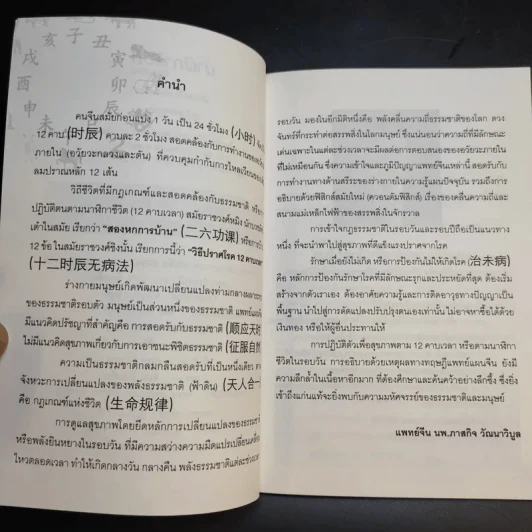 丑
子
亥
戌
酉
申
未
寅
卯
辰
คำนำ
คนจีนสมัยก่อนแบ่ง 1 วัน เป็น 24 ชั่วโมง (小时)
12 คาบ (时辰) คาบละ 2 ชั่วโมง สอดคล้องกับการทำงานของอวัยวะ
ภายใน (อวัยวะกลวงและตัน) ที่ควบคุมกำกับการไหลเวียนของ
ลมปราณหลัก 12 เส้น
วิถีชีวิตที่มีกฎเกณฑ์และสอดคล้องกับธรรมชาติ หรือ
ปฏิบัติตนตามนาฬิกาชีวิต (12 คาบเวลา) สมัยราชวงศ์หมิง
เต๋าในสมัย เรียกว่า "สองหกการบ้าน" (二六功课) หรือ
12 ข้อ ในสมัยราชวงศ์ชิงนั้น เรียกการนี้ว่า "วิธีปราศโรค 12 คาบเวลา"
(十二时辰无病法)
ร่างกายมนุษย์เกิดพัฒนาเปลี่ยนแปลงท่ามกลาง
ของธรรมชาติรอบตัว มนุษย์เป็นส่วนหนึ่งของธรรมชาติ แพทย์แผนจีน
มีแนวคิดปรัชญาที่สำคัญคือ การสอดรับกับธรรมชาติ (顺应天时)
ไม่มีแนวคิดสุขภาพเกี่ยวกับการเอาชนะพิชิตธรรมชาติ (征服自然)
ความเป็นธรรมชาติกลมกลืนสอดรับที่เป็นหนึ่งเดียว ตาม
จังหวะการเปลี่ยนแปลงของพลังธรรมชาติ (ฟ้าดิน) (天人合一)
คือ กฎเกณฑ์แห่งชีวิต (生命规律)
การดูแลสุขภาพโดยยึดหลักการเปลี่ยนแปลงของธรรมชาติ
หรือพลังยินหยางในรอบวัน ที่มีความสว่างความมืดแปรเปลี่ยน
ไหวตลอดเวลา ทำให้เกิดกลางวัน กลางคืน พลังธรรมชาติแต่ละช่วงเวลา
รอบวัน มองในอีกมิติหนึ่งคือ พลังคลื่นความถี่ธรรมชาติของโลก ดวง
จันทร์ที่กระทำต่อสรรพสิ่งในโลกมนุษย์ ซึ่งแน่นอนว่าความถี่ที่มีลักษณะ
เด่นเฉพาะในแต่ละช่วงเวลาจะมีผลต่อการตอบสนองของอวัยวะภายใน
ที่ไม่เหมือนกัน ซึ่งความเข้าใจและภูมิปัญญาแพทย์จีนเหล่านี้ สอดรับกับ
การทำงานทางด้านสรีระของร่างกายในความรู้แผนปัจจุบัน รวมถึงการ
อธิบายด้วยฟิสิกส์สมัยใหม่ (ควอนตัมฟิสิกส์) เรื่องของคลื่นความถี่และ
สนามแม่เหล็กไฟฟ้าของสรรพสิ่งในจักรวาล
การเข้าใจกฎธรรมชาติในรอบวันและรอบปีถือเป็นแนวทาง
หนึ่ง ที่จะนำพาไปสู่สุขภาพที่ดีแข็งแรงปราศจากโรค
รักษาเมื่อยังไม่เกิด หรือการป้องกันไม่ให้เกิดโรค (治未病)
คือ หลักการป้องกันรักษาโรคที่มีลักษณะรุกและประหยัดที่สุด ต้องเริ่ม
สร้างจากตัวเราเอง ต้องอาศัยความรู้และการติดอาวุธทางปัญญาเป็น
พื้นฐาน นำไปสู่การดัดแปลงปรับปรุงตนเองเท่านั้น ไม่อาจหาซื้อได้ด้วย
เงินทอง หรือให้ผู้อื่นประทานให้
การปฏิบัติตัวเพื่อสุขภาพตาม 12 คาบเวลา หรือตามนาฬิกา
ชีวิตในรอบวัน การอธิบายด้วยเหตุผลทางทฤษฎีแพทย์แผนจีน ยังมี
ความลึกล้ำในเนื้อหาอีกมาก ที่ต้องศึกษาและค้นคว้าอย่างลึกซึ้ง ซึ่งยิ่ง
เข้าถึงแก่นแท้จะยิ่งพบกับความมหัศจรรย์ของธรรมชาติและมนุษย์
แพทย์จีน นพ.ภาสกิจ วัณนาวิบูล